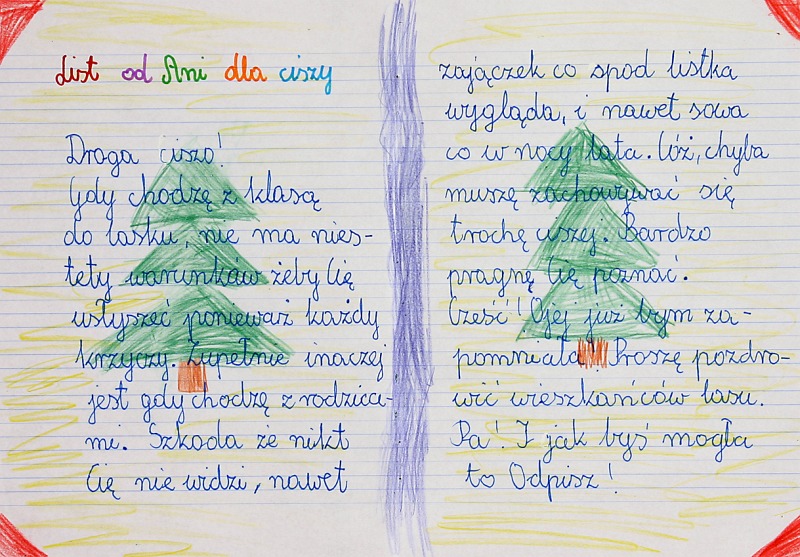 List od Ani dla ciszy
Droga ciszo!
Gdy chodzę z klasą
do lasku, nie ma nies-
tety warunków żeby Cię
usłyszeć ponieważ każdy
krzyczy. Zupełnie inaczej
jest gdy chodzę z rodzica-
mi. Szkoda że nikt
Cię nie widzi, nawet
zajączek co spod listka
wygląda, i nawet sowa
co w nocy lata. Cóż, chyba
muszę zachowywać się
trochę ciszej. Bardzo
pragnę Cię poznać.
Cześć! Ojej już bym za-
pomniała Proszę pozdro-
wić wieszkańców lasu.
Pa! I jak byś mogła
to Odpisz!